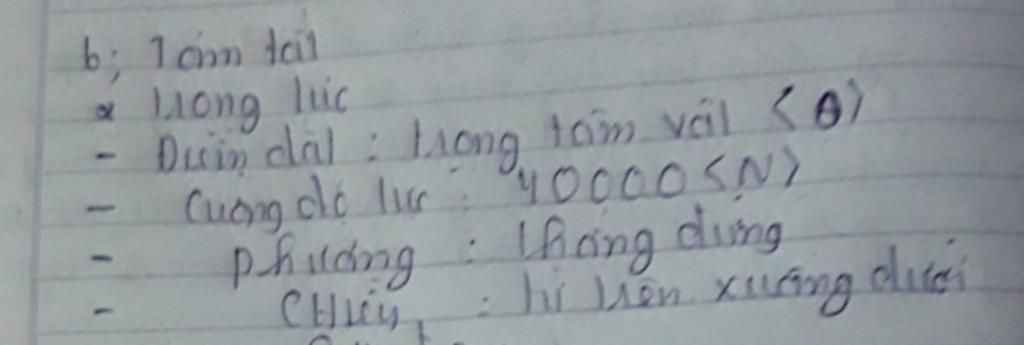 b; Tóm tắt
* Trọng lực
- Điểm đặt : trọng tâm vật (A)
- Cường độ lực : 40000 (N)
- phương : thẳng đứng
- CHiều : từ trên xuống dưới